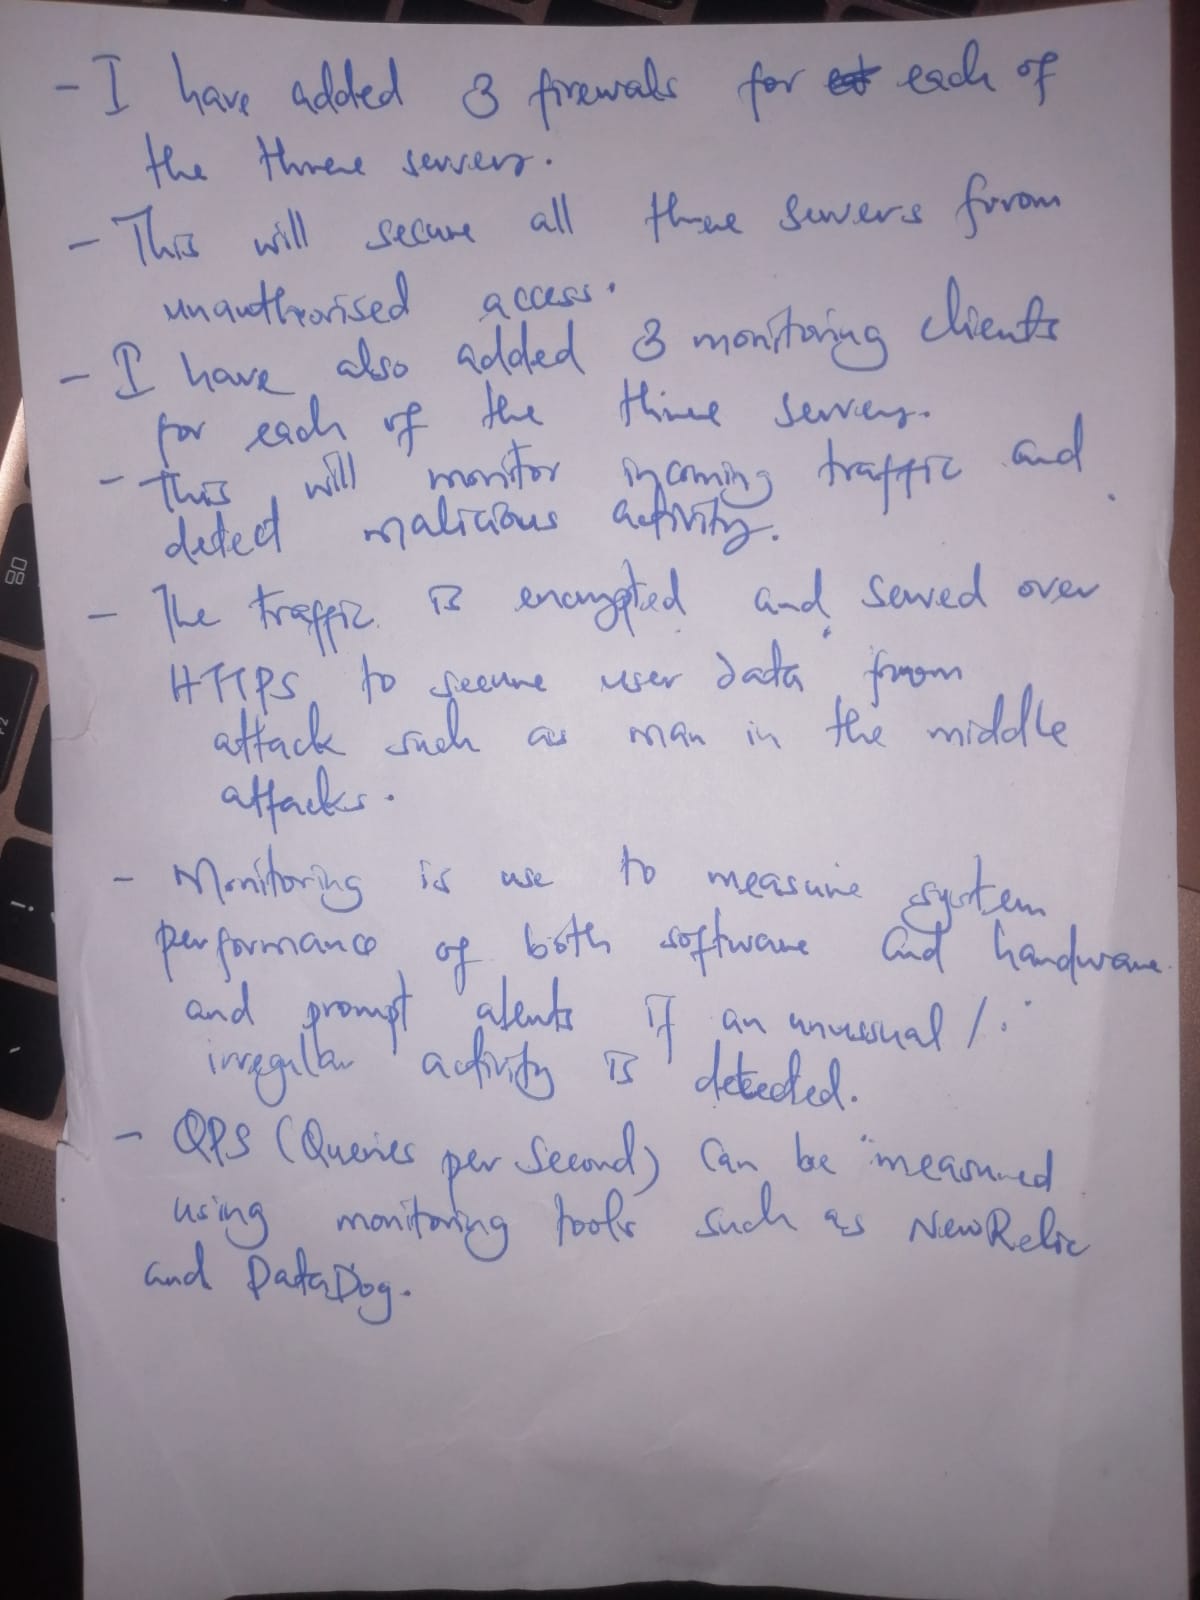 - I have added 3 firewals for each of
the three servers.
- This will secure all three servers from
unauthorised access.
- I have also added 3 monitoring clients
for each of the three servers.
- This will monitor incoming traffic and
detect malicious activity.
- The traffic is encrypted and served over
HTTPS to secure user data from
attack such as man in the middle
attacks.
- Monitoring is use to measure system
performance of both software and hardware
and prompt alents if an unussual /
irregular activity is detected.
- QPS (Queries per Second) Can be measured
using monitoring tools such as NewRelic
and DataDog.